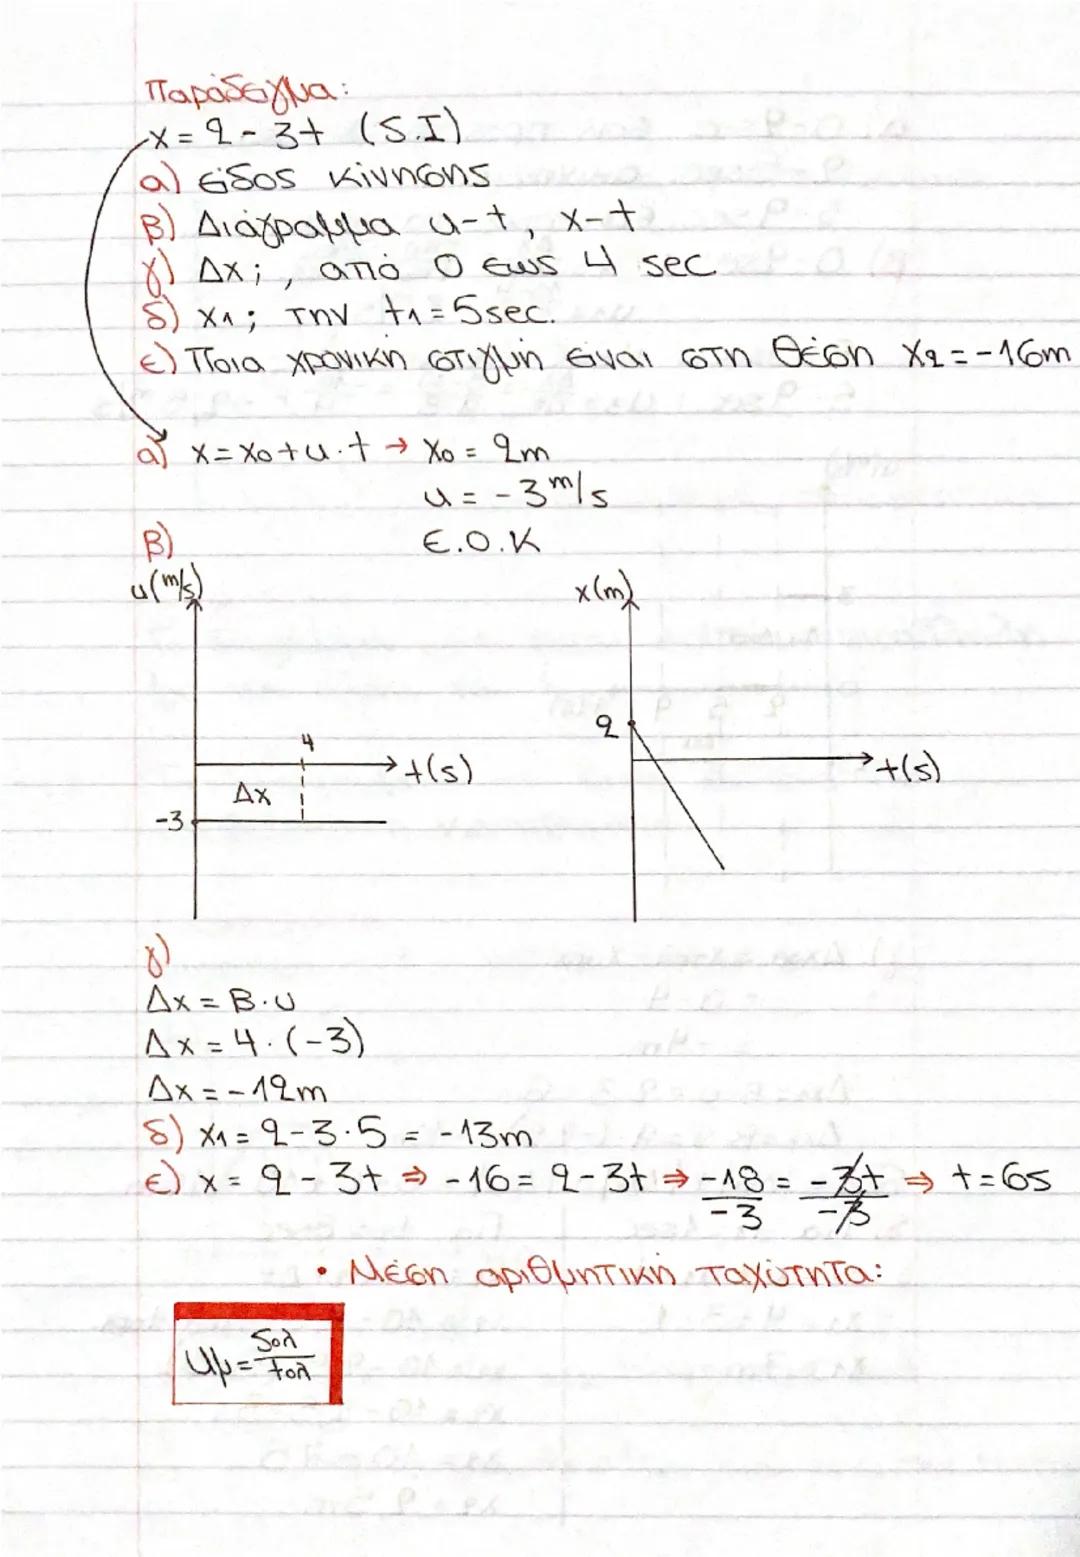 Παράδειγμα:
x = 2 - 3t (S.I)
α) είδος κίνησης
β) Διάγραμμα u-t, x-t
γ) Δx; , από 0 εως 4 sec
δ) x₁; την t₁ = 5sec.
ε) Ποια χρονική στιγμή είναι στη θέση x₂ = -16m
α) x = x₀ + u·t → x₀ = 2m
u = -3 m/s
Ε.Ο.Κ
β)
u(m/s) x(m)
2
4
t(s) t(s)
Δx
-3
γ)
Δx = Β·υ
Δx = 4·(-3)
Δx = -12m
δ) x₁ = 2-3·5 = -13m
ε) x = 2 - 3t ⇒ -16 = 2-3t ⇒ -18/-3 = -3t/-3 ⇒ t=6s
• Μέση αριθμητική ταχύτητα:
υμ = Sολ/tολ